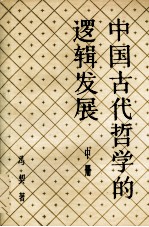 中国古代哲学的
逻辑发展
中册
冯契著